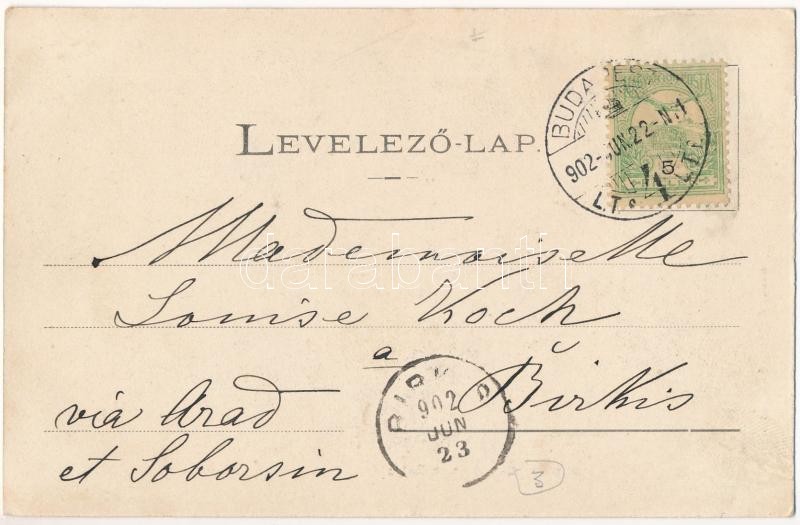 LEVELEZŐ-LAP.
BUDAPEST
902-JUN.22-N.1
L.T.
5
Mademoiselle
Louise Koch
a
Birkis
via Arad
et Soborsin
902
JUN
23
3
darabanth